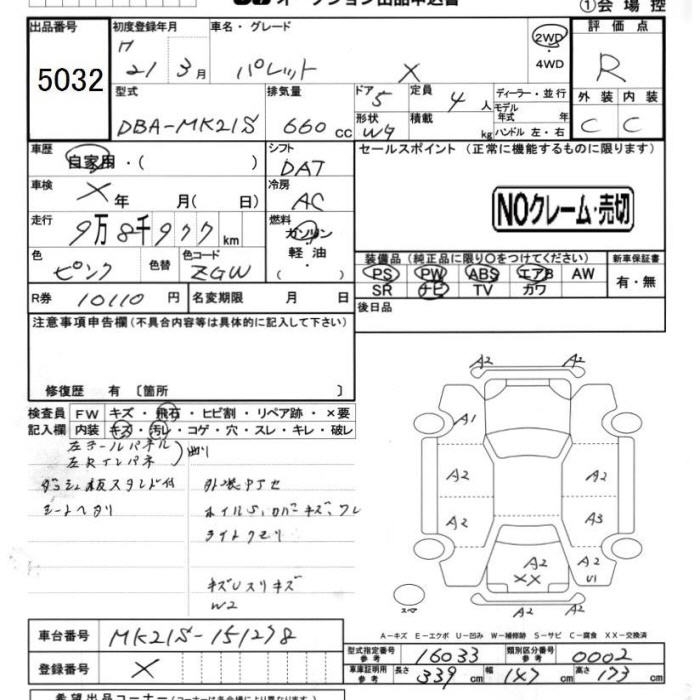 ①会場控
出品番号
5032
初度登録年月
21年3月
車名・グレード
パレット X
2WD
・
4WD
評価点
R
型式
DBA-MK21S
排気量
660cc
ドア 5
形状 W9
定員 4人
積載 kg
ディーラー・並行
モデル
年式 年
ハンドル 左・右
外装 内装
C C
車歴
自家用・( )
シフト
DAT
セールスポイント(正常に機能するものに限ります)
車検
X年 月( 日)
冷房
AC
NOクレーム・売切
走行
9万8千977km
燃料
ガソリン
・
軽油
( )
色
ピンク
色替
色コード
ZGW
装備品(純正品に限り○をつけてください) 新車保証書
PS PW ABS エアB AW
SR ナビ TV カワ
有・無
R券 10110円 名変期限 月 日
後日品
注意事項申告欄(不具合内容等は具体的に記入して下さい)
修復歴 有〔箇所 〕
検査員 FW キズ・飛石・ヒビ割・リペア跡・×要
記入欄 内装 キズ・汚レ・コゲ・穴・スレ・キレ・破レ
シートヘタリ
キズUスリキズ
W2
A2 A2
A1
A2 A2
A2 A3
A2 A2
XX U1
A2 A2
スペア
A-キズ E-エクボ U-凹み W-補修跡 S-サビ C-腐食 XX-交換済
車台番号 MK21S-151278
登録番号 X
型式指定番号
参考
16033
類別区分番号
参考
0002
車庫証明用
参考
長さ 339cm 幅 147cm 高さ 173cm
希望出品コーナー